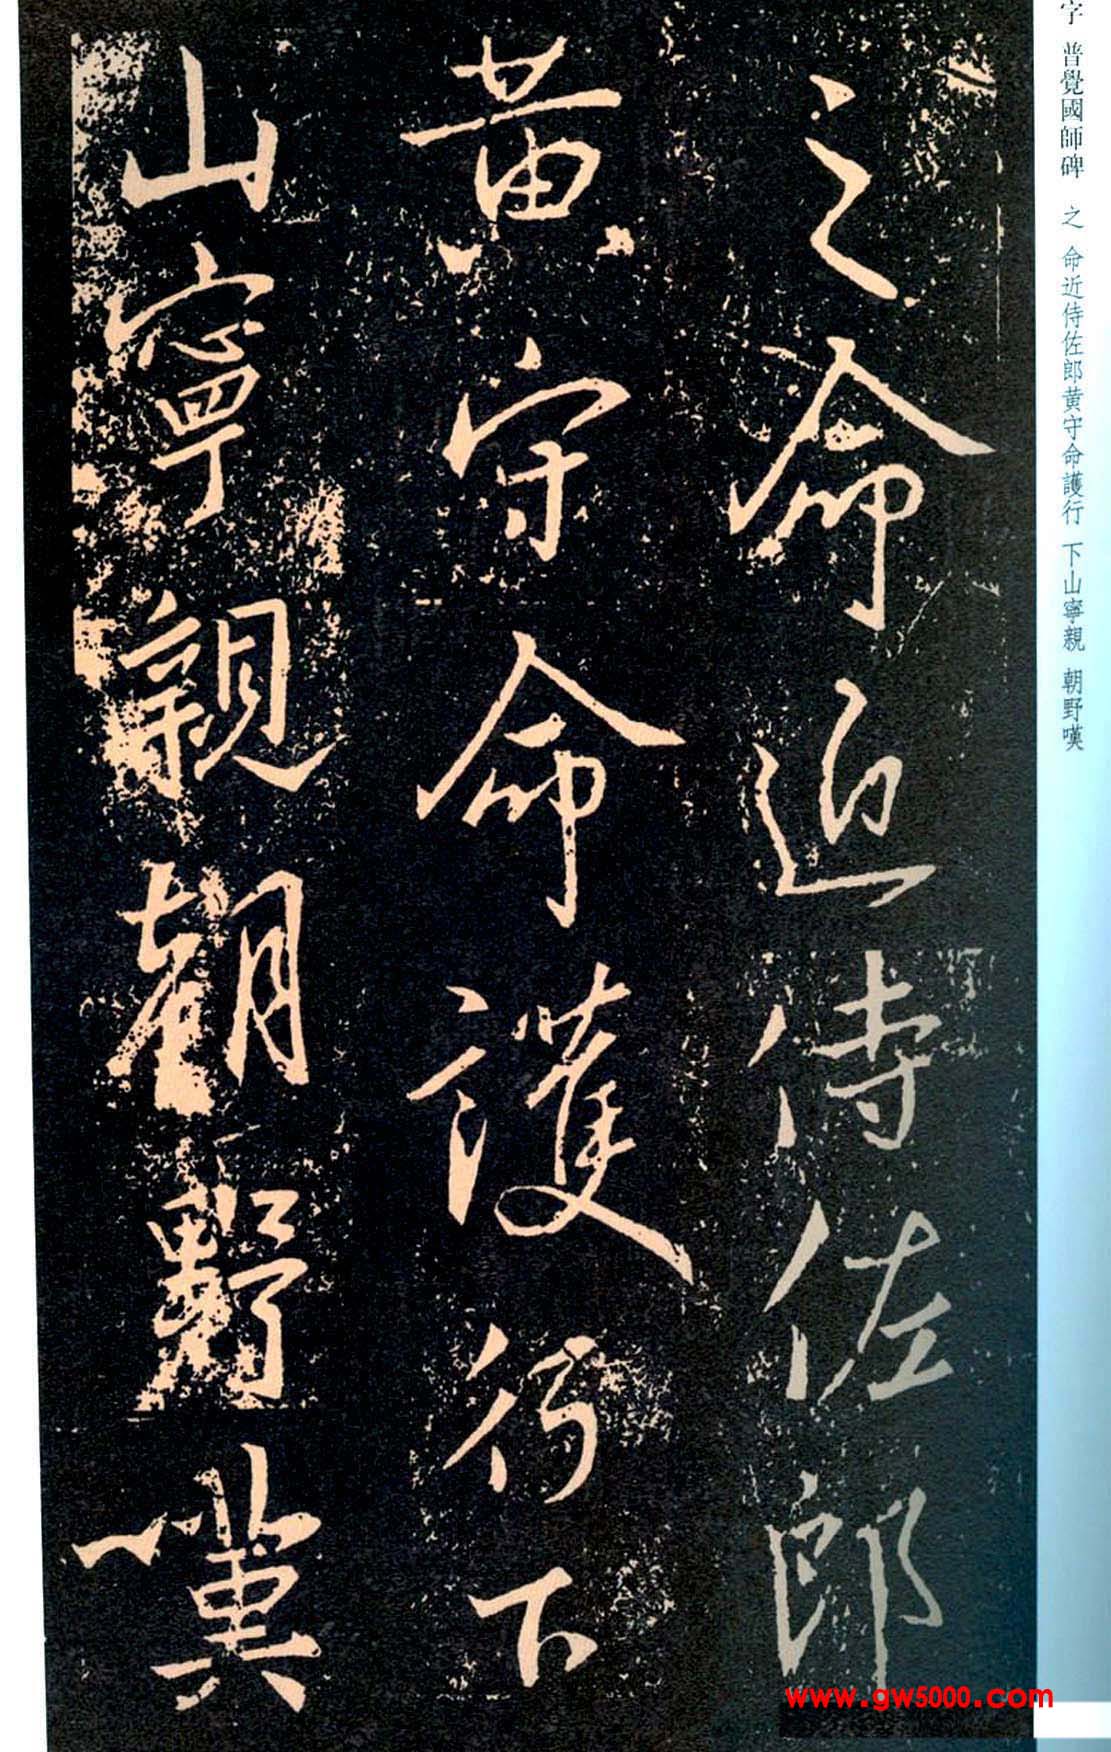 字 普覺國師碑 之 命近侍佐郎黄守命護行 下山寧親 朝野嘆
之命近侍佐郎
黄守命護行下
山寧親朝野嘆
www.gw5000.com